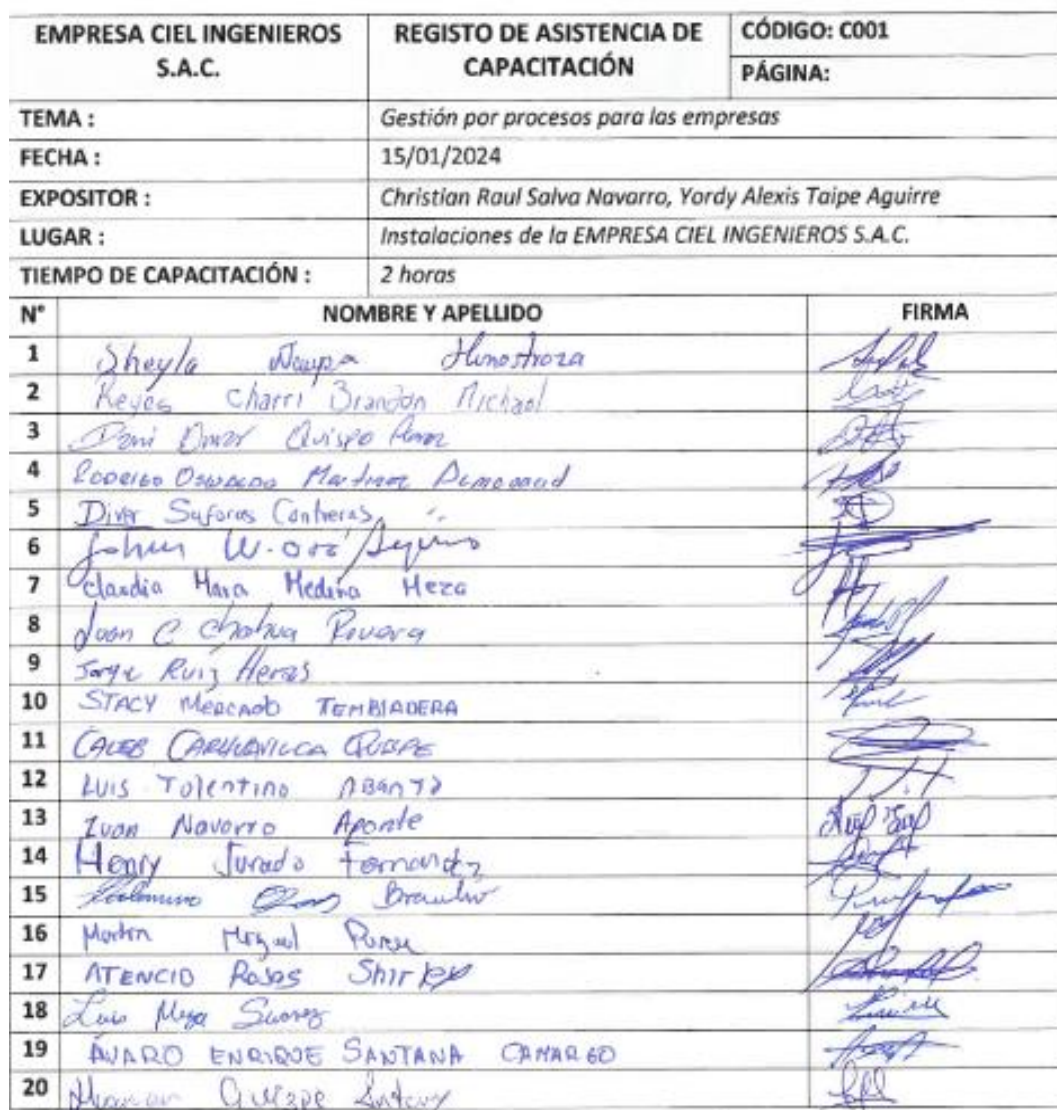 EMPRESA CIEL INGENIEROS S.A.C.
REGISTO DE ASISTENCIA DE CAPACITACIÓN
CÓDIGO: C001
PÁGINA:
TEMA : Gestión por procesos para las empresas
FECHA : 15/01/2024
EXPOSITOR : Christian Raul Salva Navarro, Yordy Alexis Taipe Aguirre
LUGAR : Instalaciones de la EMPRESA CIEL INGENIEROS S.A.C.
TIEMPO DE CAPACITACIÓN : 2 horas
N° NOMBRE Y APELLIDO FIRMA
1 Sheyla Ñaupa Hinostroza
2 Reyes Charri Brandon Michael
3 Dani Omar Quispe
4 Rodrigo Oswaldo Martinez
5 Diver Contreras
6 W.
7 Claudia Mara Medina Meza
8 Juan C Chahua
9 Jorge Ruiz
10 STACY MERCADO TEMBLADERA
11 CALEB CARHUAVILCA QUISPE
12 LUIS Tolentino
13 Ivan Navarro Aponte
14 Henry Jurado Fernandez
15 Braulio
16 Martin Miguel
17 ATENCIO Rojas Shirley
18 Luis Meza Suarez
19 ÁVARO ENRIQUE SANTANA CAMARGO
20 Quispe Antony